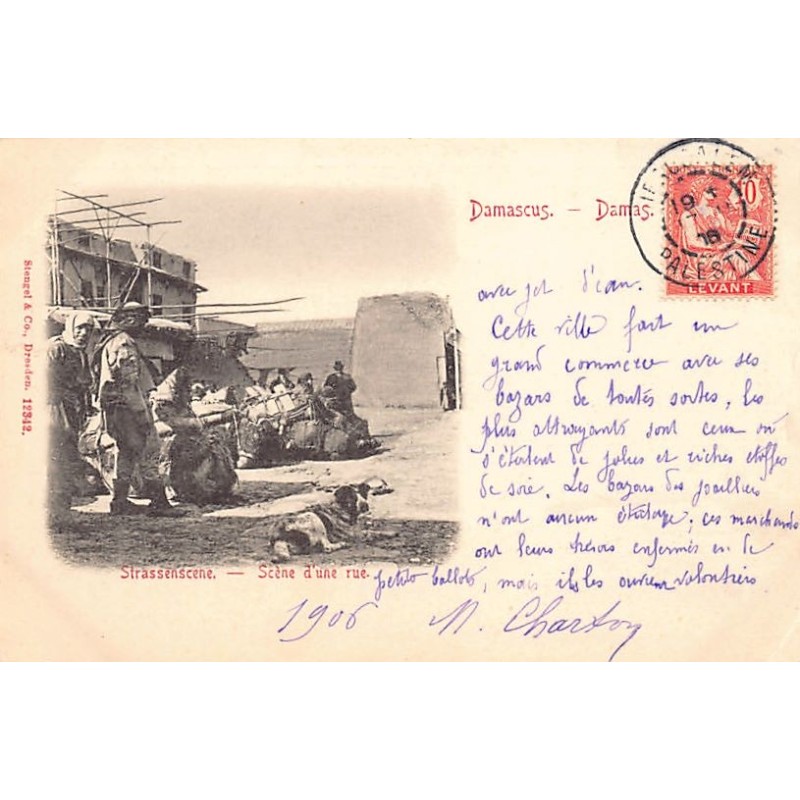 Damascus. — Damas.
JERUSALEM
PALESTINE
19
10
LEVANT
avec jet d'eau.
Cette ville fait un
grand commerce avec ses
bazars de toutes sortes, les
plus attrayants sont ceux où
s'étalent de jolies et riches étoffes
de soie. Les bazars des joailliers
n'ont aucun étalage; ces marchands
ont leurs trésors enfermés en de
petits ballots, mais ils les ouvrent volontiers
1906 M. Charton
Strassenscene. — Scène d'une rue.
Stengel & Co., Dresden. 12342.